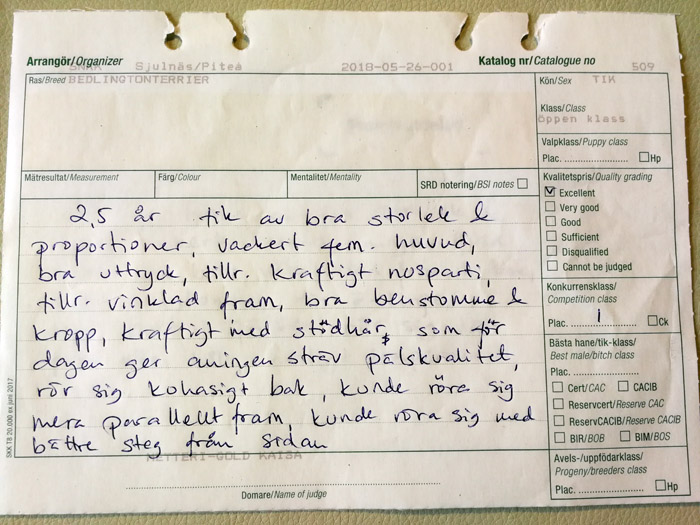 Arrangör/Organizer Sjulnäs/Piteå 2018-05-26-001 Katalog nr/Catalogue no 509
Ras/Breed BEDLINGTONTERRIER
Kön/Sex TIK
Klass/Class
öppen klass
Valpklass/Puppy class
Plac. Hp
Mätresultat/Measurement Färg/Colour Mentalitet/Mentality SRD notering/BSI notes
Kvalitetspris/Quality grading
Excellent
Very good
Good
Sufficient
Disqualified
Cannot be judged
Konkurrensklass/
Competition class
Plac. 1 Ck
Bästa hane/tik-klass/
Best male/bitch class
Plac.
Cert/CAC CACIB
Reservcert/Reserve CAC
ReservCACIB/Reserve CACIB
BIR/BOB BIM/BOS
Avels-/uppfödarklass/
Progeny/breeders class
Plac. Hp
2,5 år tik av bra storlek &
proportioner, vackert fem. huvud,
bra uttryck, tillr. kraftigt nosparti,
tillr. vinklad fram, bra benstomme &
kropp, kraftigt med stödhår, som för
dagen ger aningen sträv pälskvalitet,
rör sig kohasigt bak, kunde röra sig
mera parallellt fram, kunde röra sig med
bättre steg från sidan
KETTERI-GOLD KAISA
Domare/Name of judge
SKK T8 20.000 ex juni 2017